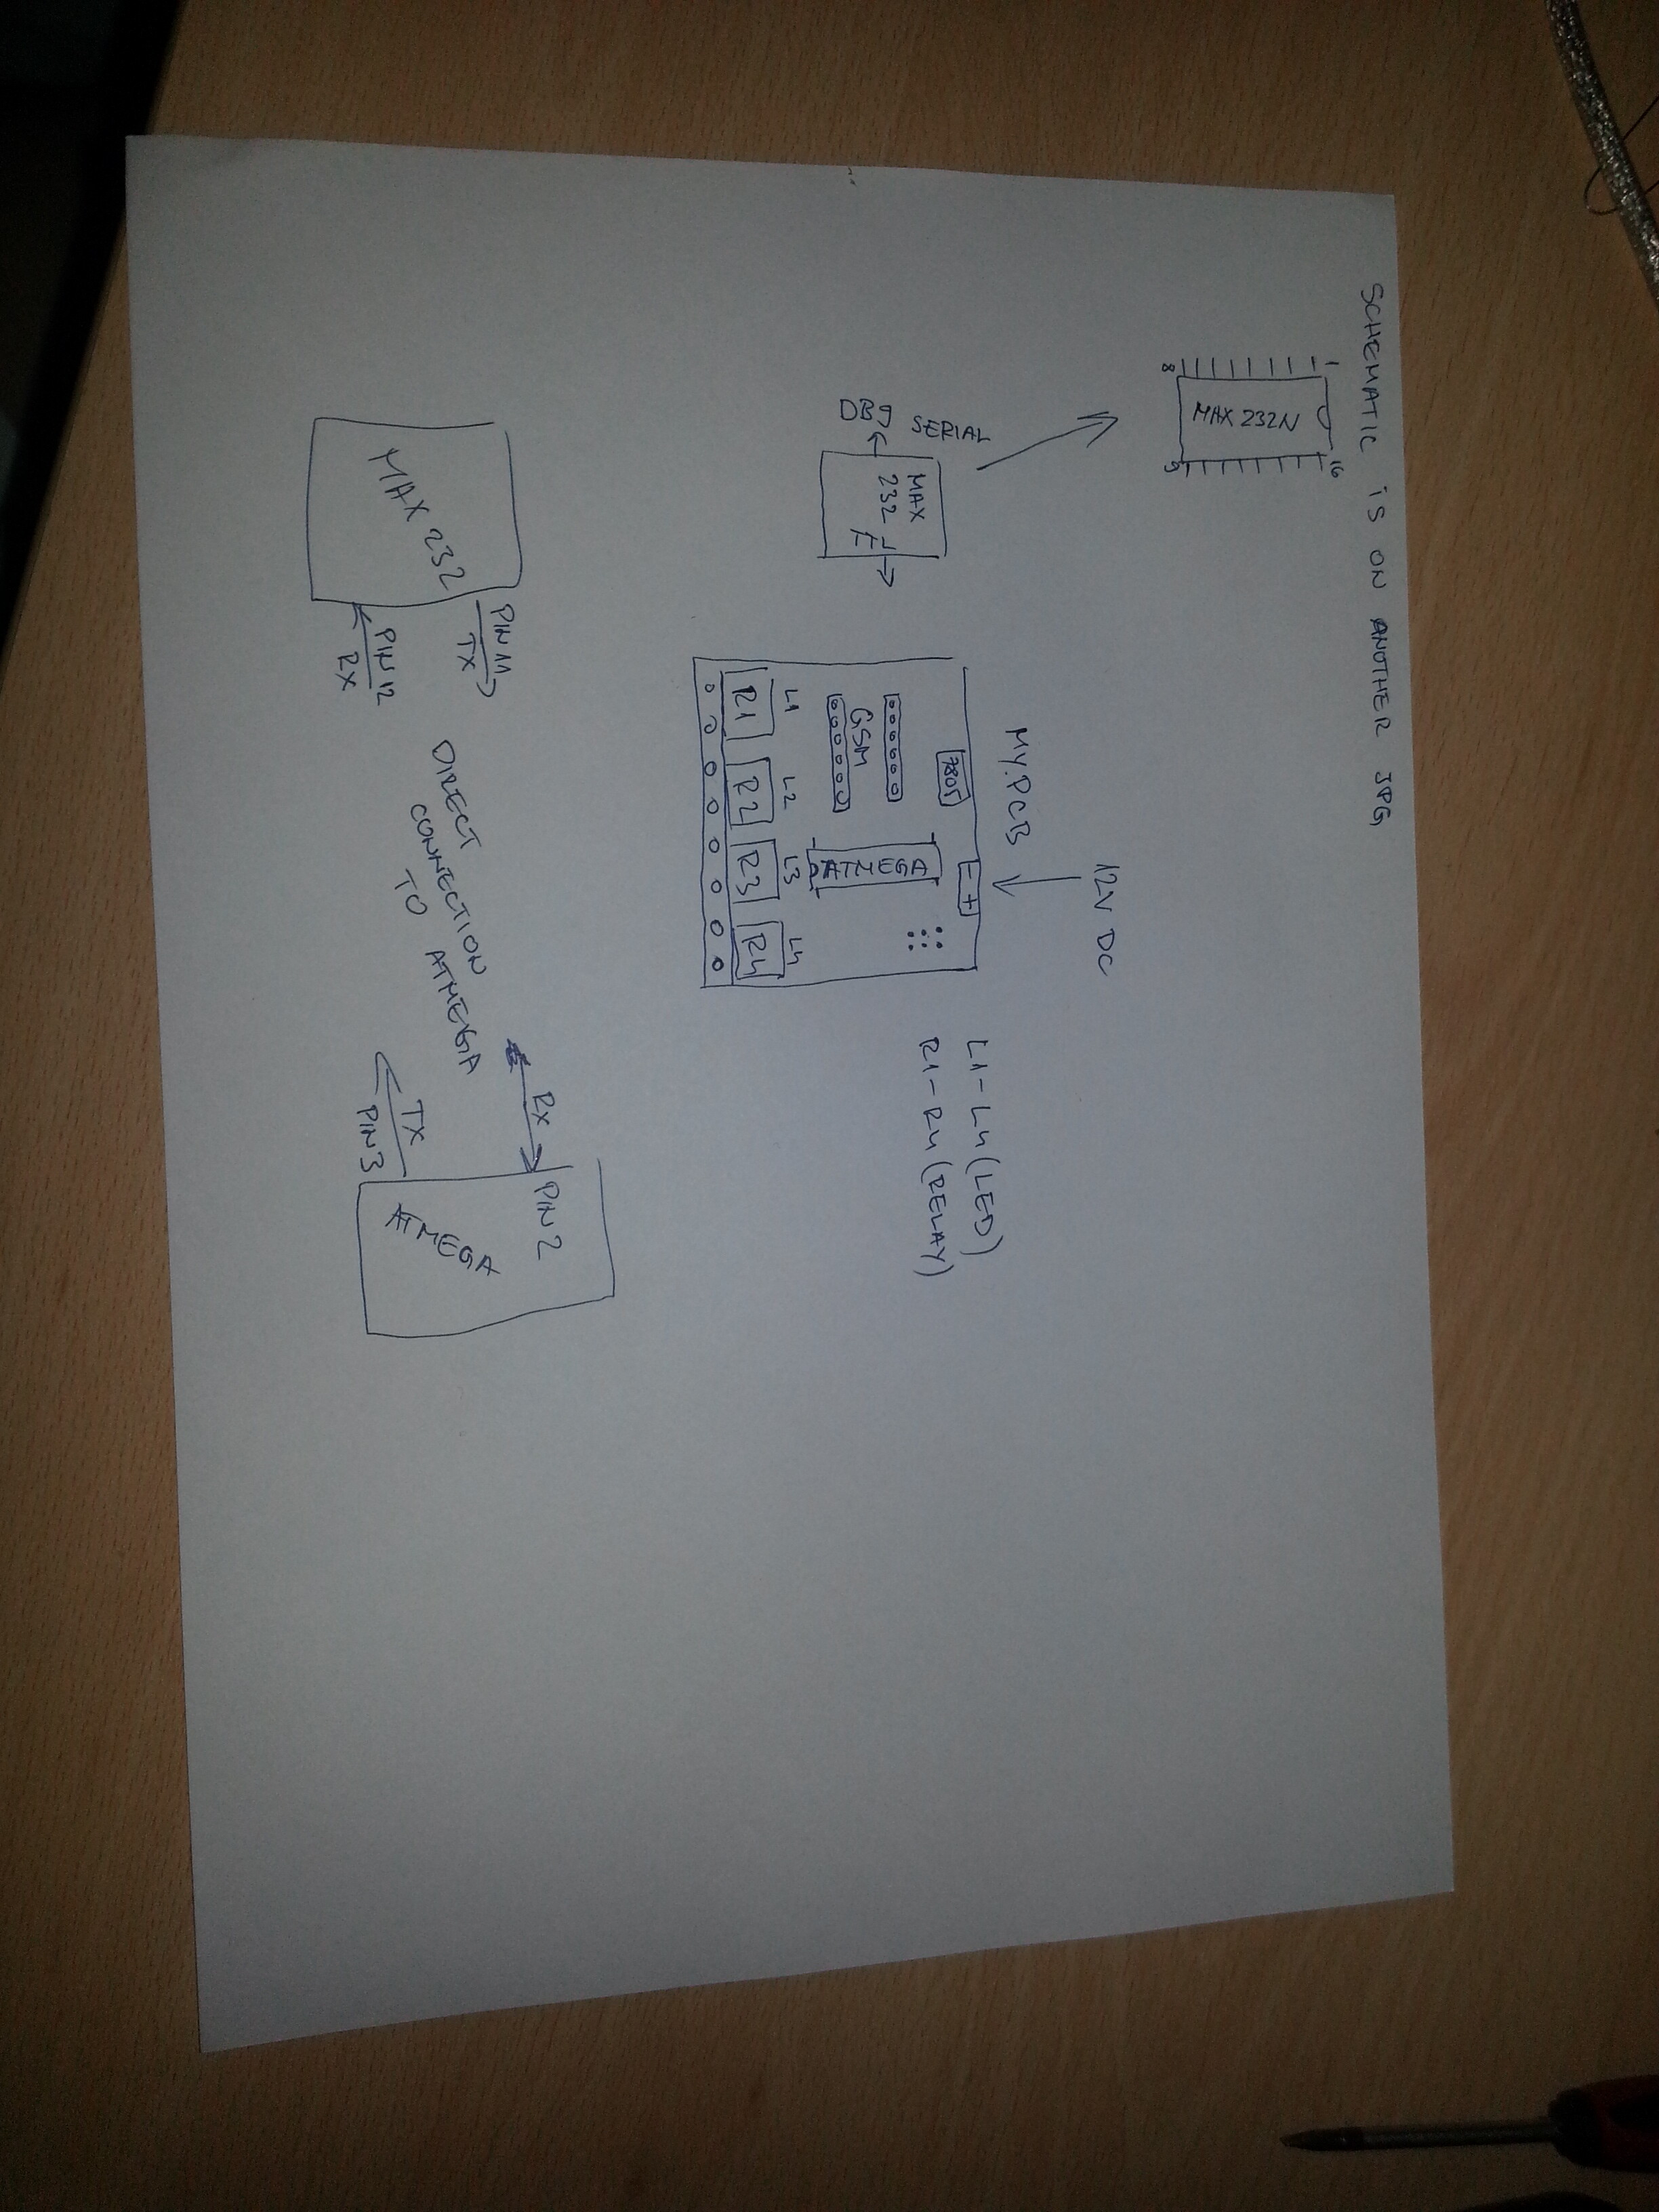 SCHEMATIC iS ON ANOTHER JPG
1
16
MAX 232N
8
9
12V DC
MY PCB
SERIAL
DB9
MAX
232
7805
- +
GSM
ATMEGA
L1 L2 L3 L4
R1 R2 R3 R4
L1 - L4 (LED)
R1 - R4 (RELAY)
MAX 232
PIN 11
TX
PIN 12
RX
DIRECT
CONNECTION
TO ATMEGA
RX
PIN 2
TX
PIN 3
ATMEGA